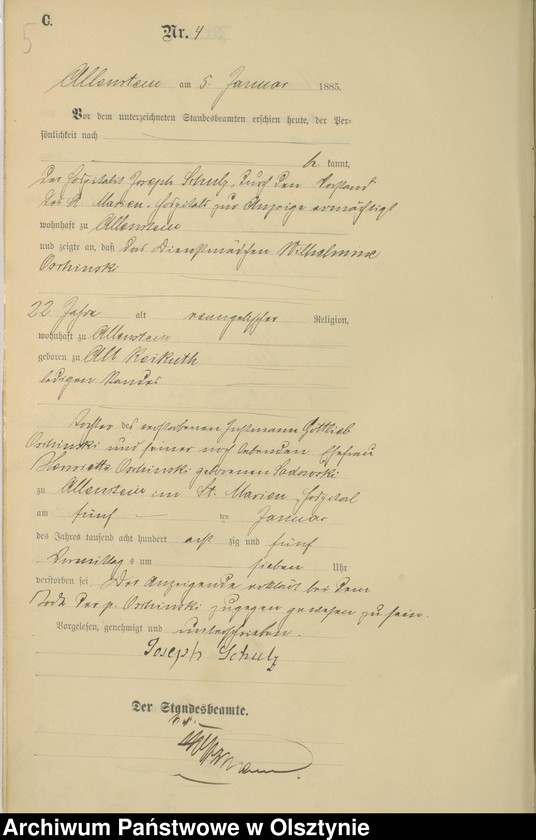 C.
5
Nr. 4
Allenstein am 5. Januar 1885.
Vor dem unterzeichneten Standesbeamten erschien heute, der Per-
sönlichkeit nach
kannt,
der Hospitalit Joseph Schulz, durch den Vorstand
des St. Marien-Hospitals zur Anzeige ermächtigt
wohnhaft zu Allenstein
und zeigte an, daß das Dienstmädchen Wilhelmine
22 Jahre alt evangelischer Religion,
wohnhaft zu Allenstein
geboren zu Alt Keikuth
ledigen Standes
Tochter des verstorbenen Gottlieb
und seiner noch lebenden Ehefrau
Henriette geborenen Sadowski
zu Allenstein im St. Marien-Hospital
am fünf ten Januar
des Jahres tausend acht hundert acht zig und fünf
Vormittags um sieben Uhr
verstorben sei. Der Anzeigende erklärt bei dem
Tode der p. zugegen gewesen zu sein.
Vorgelesen, genehmigt und unterschrieben.
Joseph Schulz
Der Standesbeamte.
Archiwum Państwowe w Olsztynie